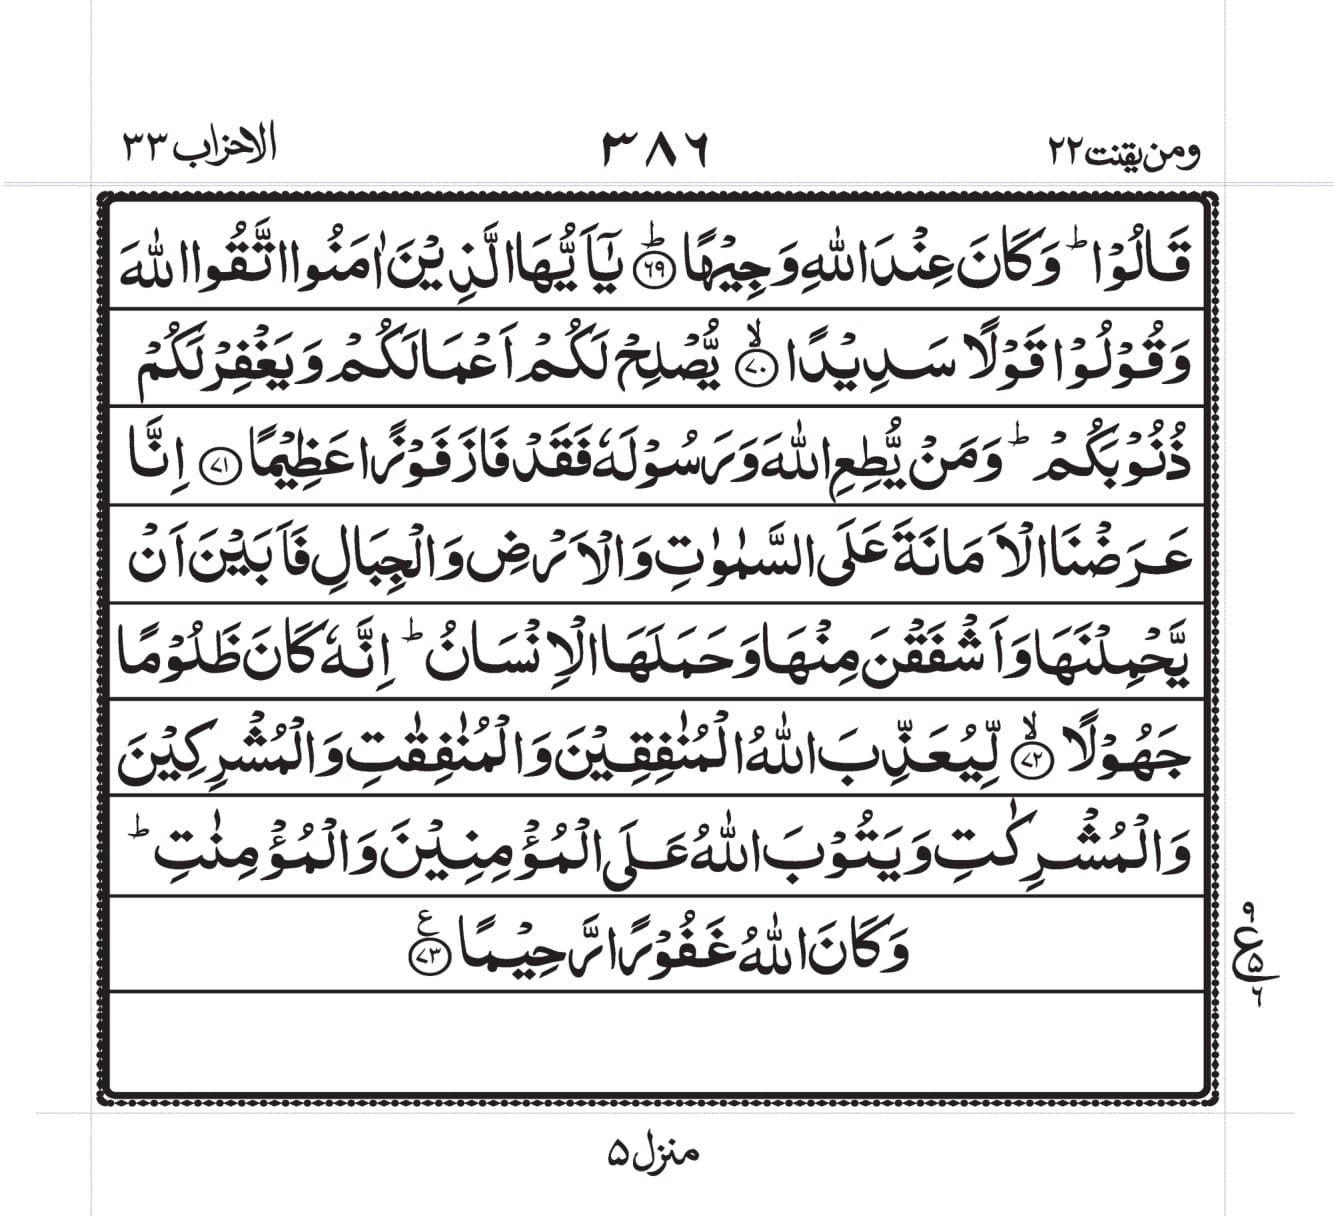 ومن يقنت ٢٢
٣٨٦
الاحزاب ٣٣
قَالُوْا ؕ وَكَانَ عِنْدَ اللّٰهِ وَجِيْهًا ؕ ۶۹ يٰۤاَيُّهَا الَّذِيْنَ اٰمَنُوا اتَّقُوا اللّٰهَ
وَقُوْلُوْا قَوْلًا سَدِيْدًا ۙ ۷۰ يُّصْلِحْ لَكُمْ اَعْمَالَكُمْ وَيَغْفِرْ لَكُمْ
ذُنُوْبَكُمْ ؕ وَمَنْ يُّطِعِ اللّٰهَ وَرَسُوْلَهٗ فَقَدْ فَازَ فَوْزًا عَظِيْمًا ۷۱ اِنَّا
عَرَضْنَا الْاَمَانَةَ عَلَى السَّمٰوٰتِ وَالْاَرْضِ وَالْجِبَالِ فَاَبَيْنَ اَنْ
يَّحْمِلْنَهَا وَاَشْفَقْنَ مِنْهَا وَحَمَلَهَا الْاِنْسَانُ ؕ اِنَّهٗ كَانَ ظَلُوْمًا
جَهُوْلًا ۙ ۷۲ لِّيُعَذِّبَ اللّٰهُ الْمُنٰفِقِيْنَ وَالْمُنٰفِقٰتِ وَالْمُشْرِكِيْنَ
وَالْمُشْرِكٰتِ وَيَتُوْبَ اللّٰهُ عَلَى الْمُؤْمِنِيْنَ وَالْمُؤْمِنٰتِ ؕ
وَكَانَ اللّٰهُ غَفُوْرًا رَّحِيْمًا ع ۷۳
۹
ع ۵
۶
منزل ۵